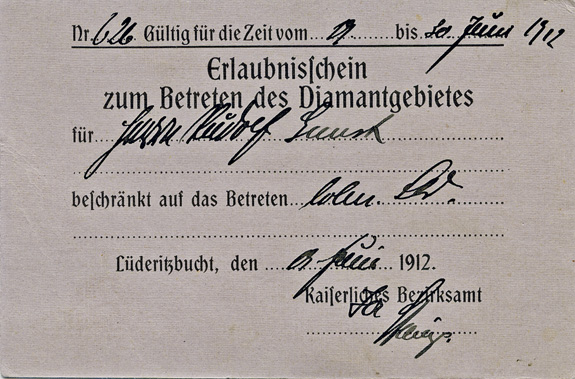 Nr. 626. Gültig für die Zeit vom bis Juni 1912
Erlaubnisschein
zum Betreten des Diamantgebietes
für Herrn Rudolf
beschränkt auf das Betreten
Lüderitzbucht, den Juni 1912.
Kaiserliches Bezirksamt